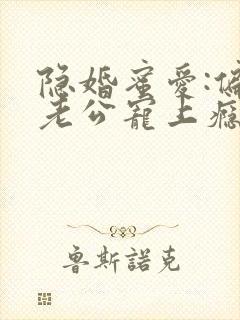 隐婚蜜爱:偏
老公宠上瘾
鲁斯諾克